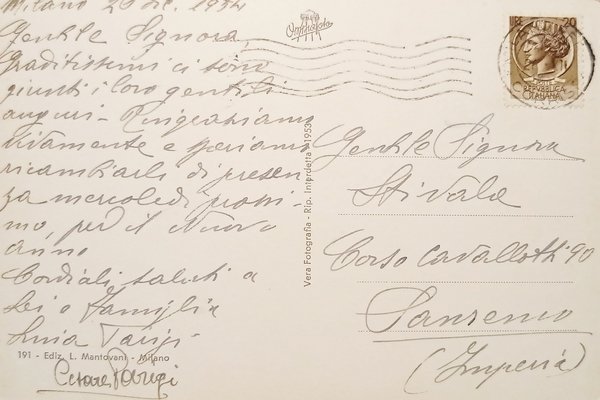 Milano 26 Dic. 1954
Gentile Signora,
Graditissimi ci sono
giunti i loro gentili
auguri - Ringraziamo
vivamente e speriamo
ricambiarli di presen
za mercoledì prossi
mo, per il Nuovo
anno
Cordiali saluti a
Lei e Famiglia
Parigi
Cesare Parigi
191 - Ediz. L. Mantovani - Milano
Vera Fotografia - Rip. Interdetta - 1953
20
REPVBBLICA
ITALIANA
Gentile Signora
Stivale
Corso Cavallotti 90
Sanremo
(Imperia)